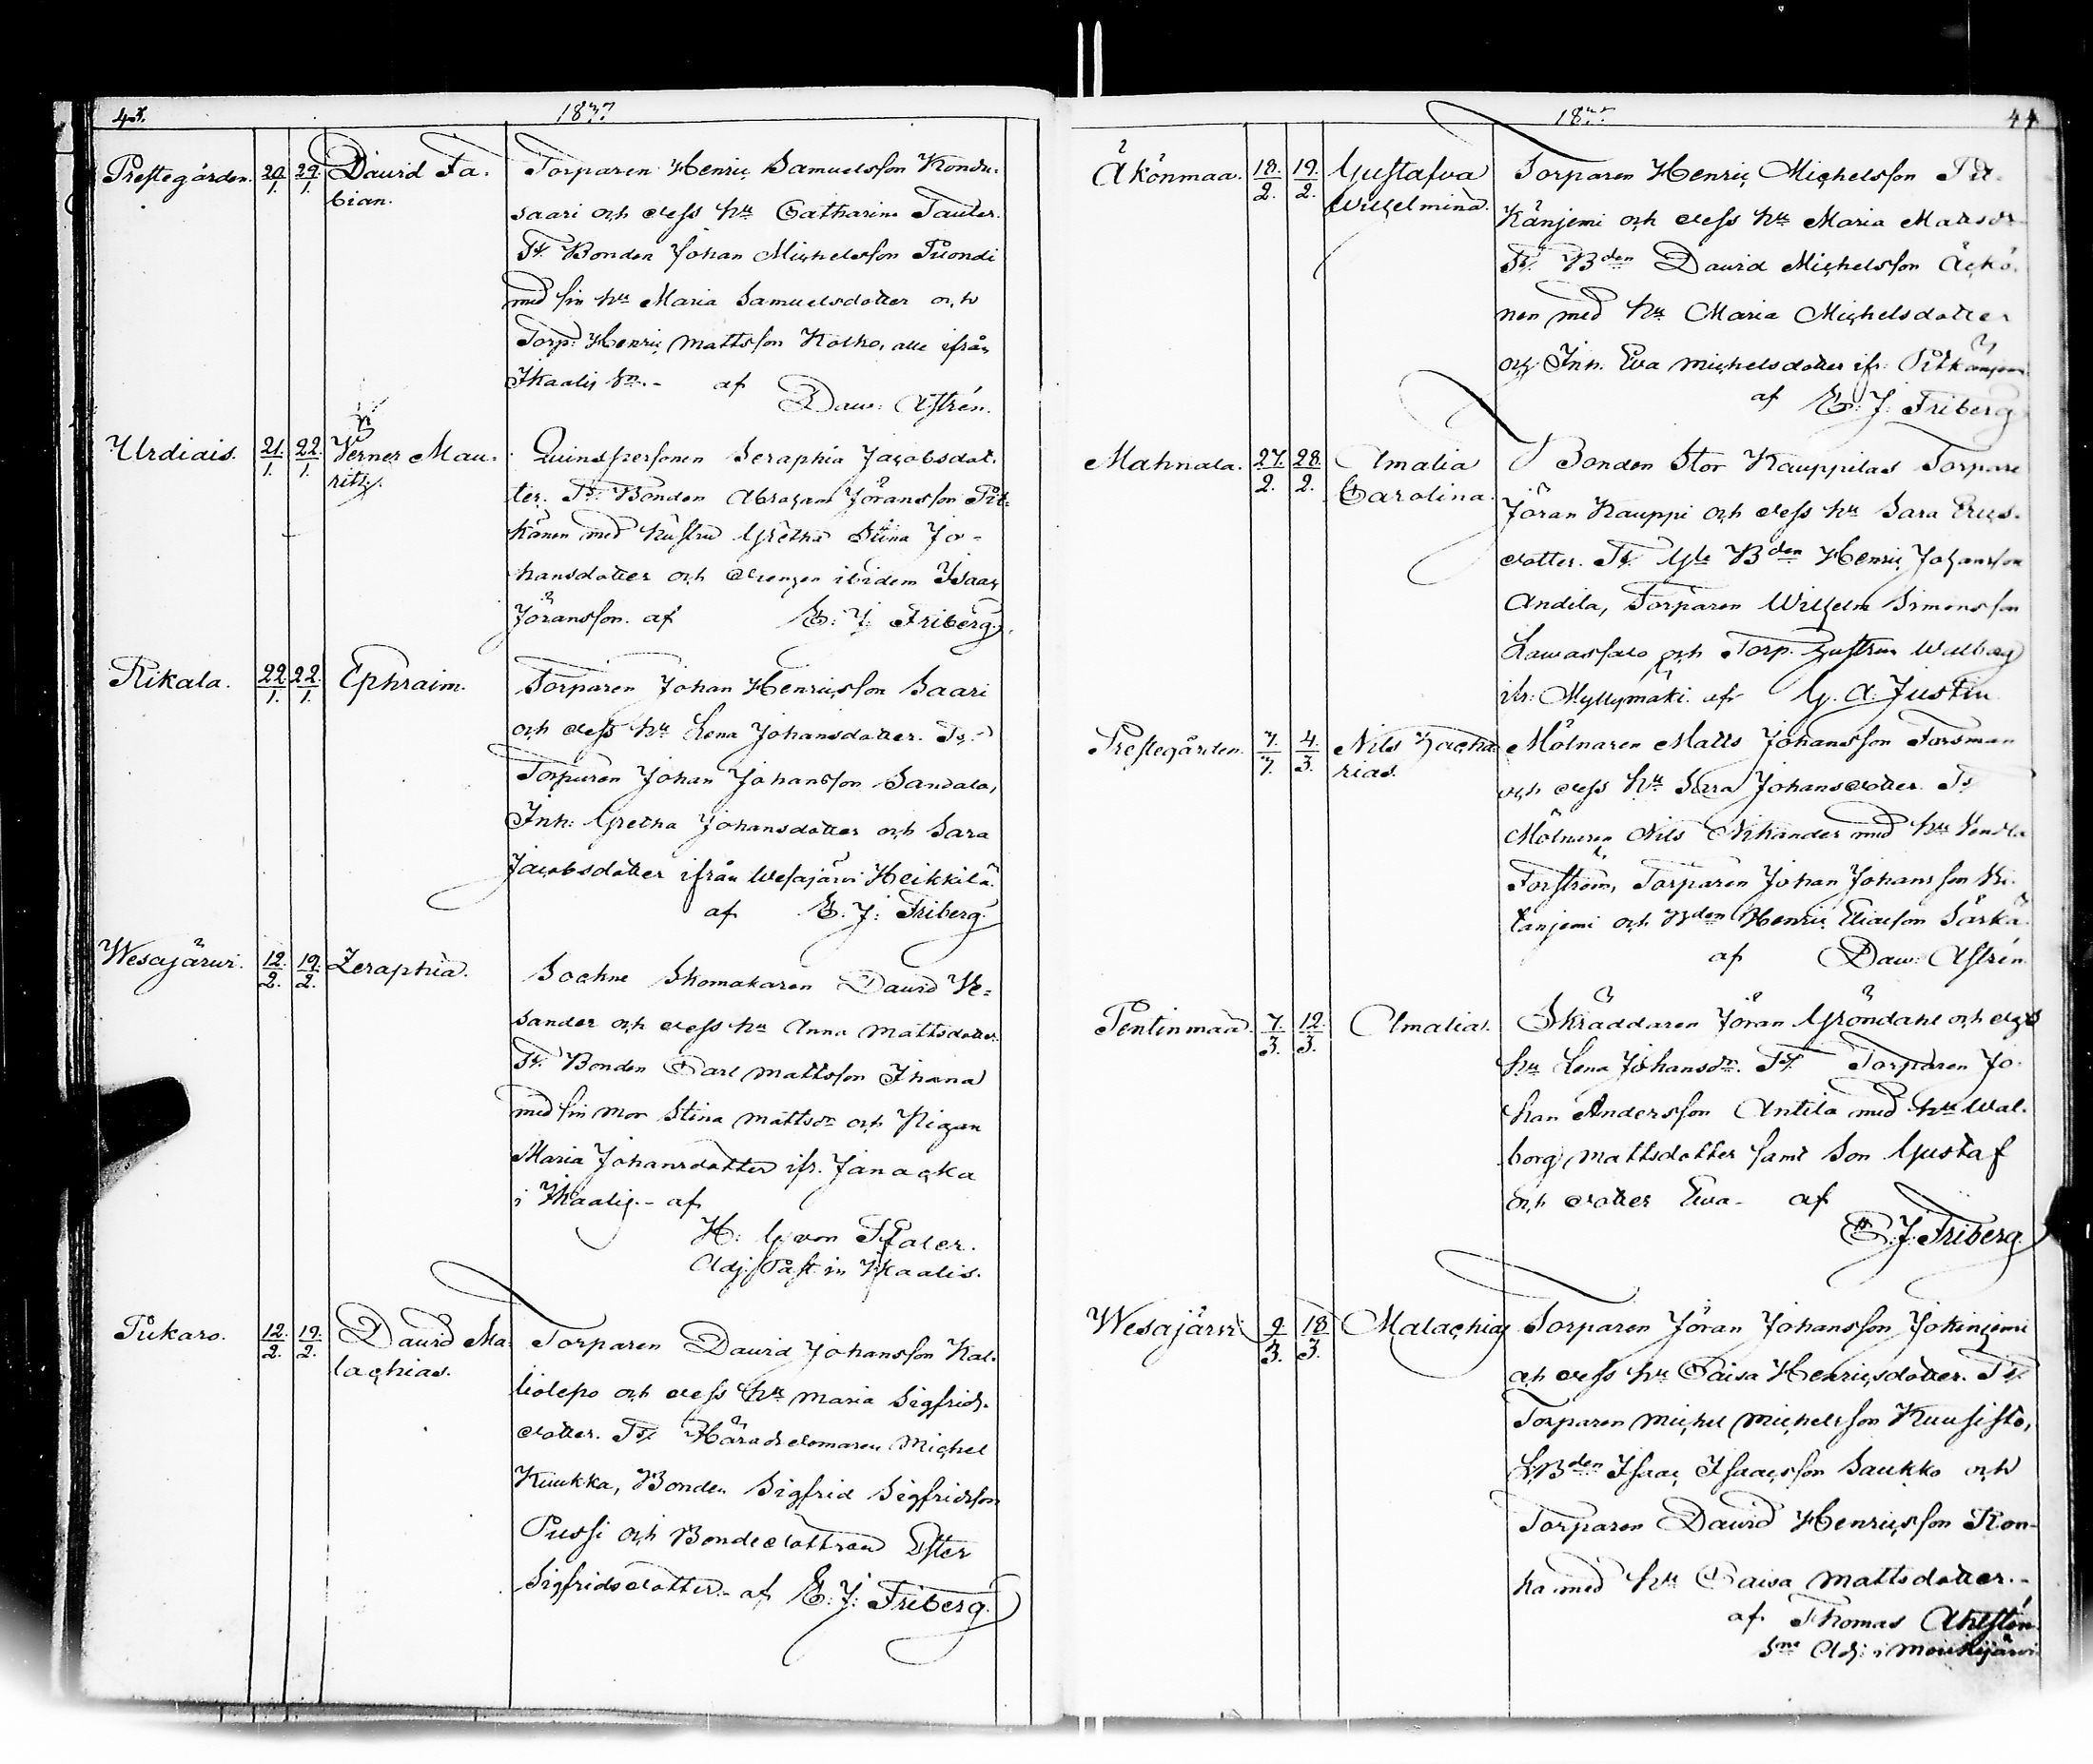 1837.
Prestegården. 20/1. 29/1. David Fa-
bian.
Torparen Henric Samuelsson Kondu-
saari och dess hu Catharina Tauler.
Tt. Bonden Johan Michelsson Tuondi
med sin hu Maria Samuelsdotter och
Torp: Henric Mattsson Kolho, alle ifrån
Ikalis Sn. - af
Daw: Astrén.
Urdiais. 21/1. 22/1. Verner Mau-
ritz.
Quinspersonen Seraphia Jacobsdot-
ter. Tt. Bonden Abraham Jöransson Pit-
känen med hustru Gretha Stina Jo-
hansdotter och drengen ibidem Isaac
Jöransson. af E: J: Friberg.
Rikala. 22/1. 22/1. Ephraim.
Torparen Johan Henricsson Saari
och dess hu Lena Johansdotter. Tt.
Torparen Johan Johansson Sandala,
Inh: Gretha Johansdotter och Sara
Jacobsdotter ifrån Wesajärvi Heikkilä.
af E. J: Friberg.
Wesajärwi. 12/2. 19/2. Zeraphia.
Sockne Skomakaren David We-
sander och dess hu Anna Mattsdotter
Tt. Bonden Carl Mattsson Ihana
med sin mor Stina Mattsdr och Pigan
Maria Johansdotter ifr. Janacka
i Ikaalis. - af
H: G von Pfaler.
Adj: Past: in Ikaalis.
12/2. 19/2. David Ma-
lachias.
Torparen David Johansson Kal-
liolepo och dess hu Maria Sigfrids-
dotter. Tt Häradsdomaren Michel
Kuukka, Bonden Sigfrid Sigfridsson
Pussi och Bondedottren Ester
Sigfridsdotter. - af E: J: Friberg.
44
Äkönmaa. 18/2. 19/2. Gustafva
Wilhelmina.
Torparen Henric Michelsson Pit-
känjemi och dess hu Maria Matsdr
Tt. Bden David Michelsson Äckö-
nen med hu Maria Michelsdotter
och Inh. Eva Michelsdotter ifr: Pitkänjemi
af E: J: Friberg
Mahnala. 27/2. 28/2. Amalia
Carolina.
Bonden Stor Kauppilas Torpare
Jöran Kauppi och dess hu Sara Erics-
dotter. Tt. Gle Bden Henric Johansson
Andila, Torparen Wilhelm Simonsson
Lawassalo och Torp. hustrun Walborg
ifr: Myllymäki. af G. A. Justin
Prestegården. 4/3. Nils Zacha
rias.
Mölnaren Matts Johansson Forsman
och dess hu Sara Johansdotter. Tt
Mölnaren Nils Nikander med hu Vendla
Forsström, Torparen Johan Johansson Ki-
länjemi och Bden Henric Eliasson Särkä
af Daw: Astrén
Pentinmaa. 7/3. 12/3. Amalia.
Skräddaren Jöran Gröndahl och dess
hu Lena Johansdr. Tt Torparen Jo-
han Andersson Antila med hu Wal-
borg Mattsdotter samt Son Gustaf
och dotter Ewa - af
E. J. Friberg
Wesajärvi. 9/3. 18/3. Malachias
Torparen Jöran Johansson Jokinjemi
och dess hu Caisa Henricsdotter. Tt
Torparen Michel Michelsson Kuusisto,
LBden Isaac Isaacsson Saukko och
Torparen David Henricsson Kon-
ka med hu Caisa Mattsdotter. -
af Thomas Ahlstén
Sne Adj: i Mouhijärvi